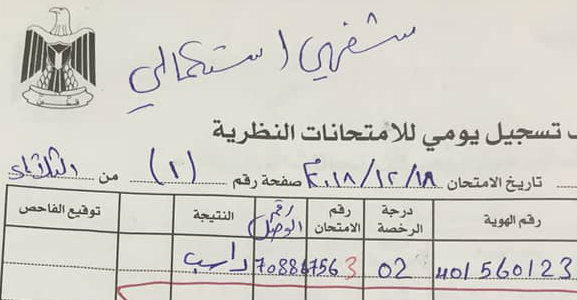 شفهي استكمالي
تسجيل يومي للامتحانات النظرية
تاريخ الامتحان ٢٠١٨/١٢/١٨ صفحة رقم (١) من الثلاثاء
رقم الهوية درجة الرخصة رقم الامتحان رقم الوصل النتيجة توقيع الفاحص
401560123 02 3 70886756 راسب